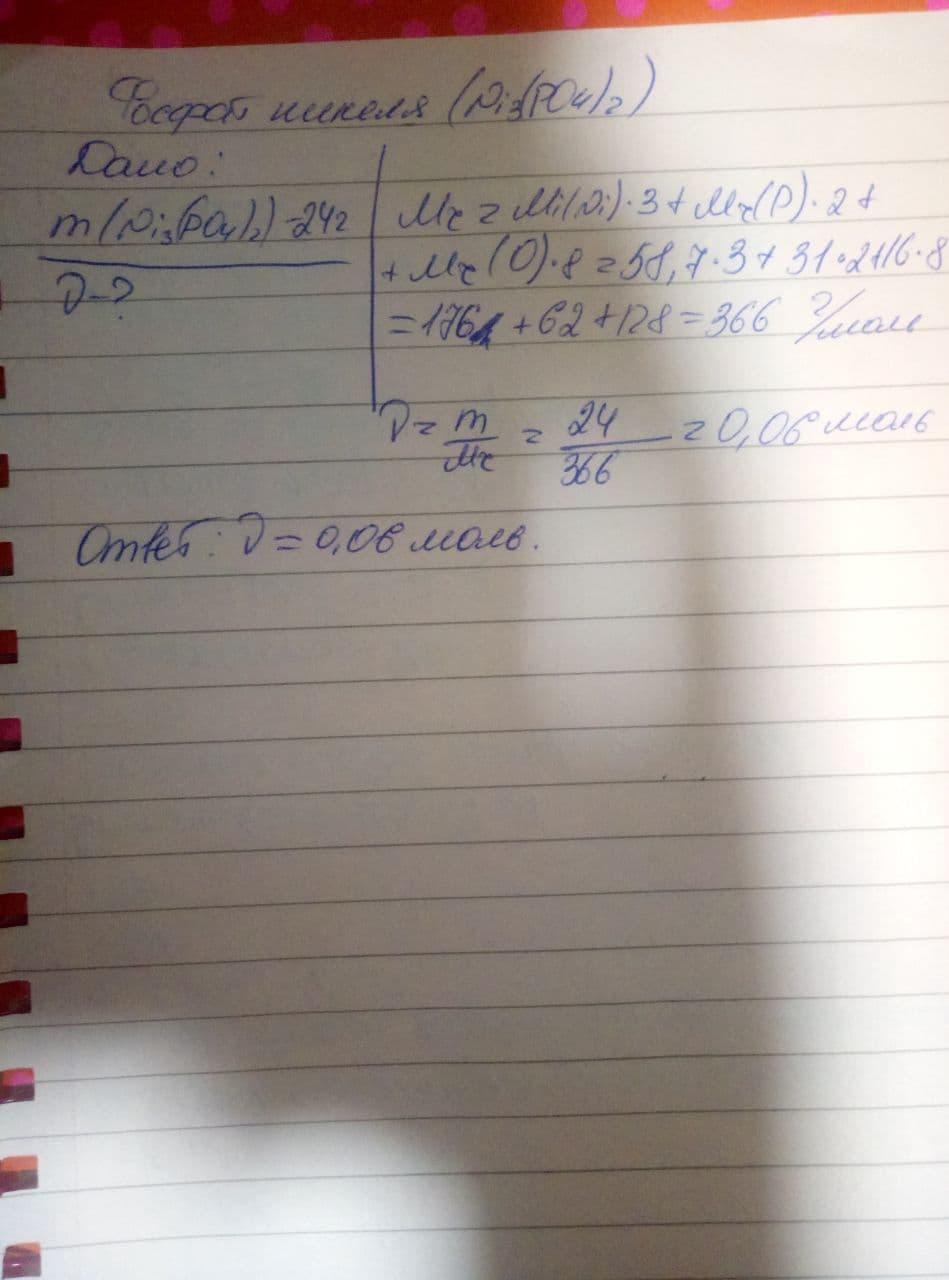 Фосфат никеля (Ni₃(PO₄)₂)
Дано:
m(Ni₃(PO₄)₂)-24г
ν-?
Mr = Mr(Ni)·3 + Mr(P)·2 +
+ Mr(O)·8 = 58,7·3 + 31·2+16·8
= 176 + 62 + 128 = 366 г/моль
ν = m/Mr = 24/366 = 0,06 моль
Ответ: ν = 0,06 моль.